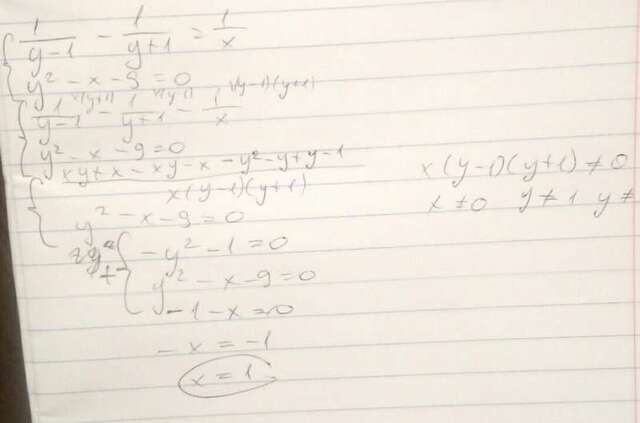 { 1/(y-1) - 1/(y+1) = 1/x
y² - x - 9 = 0
{ 1/(y-1) - 1/(y+1) - 1/x
x(y+1) x(y-1) (y-1)(y+1)
y² - x - 9 = 0
{ (xy + x - xy - x - y² - y + y - 1)/(x(y-1)(y+1))
y² - x - 9 = 0
x(y-1)(y+1) ≠ 0
x ≠ 0 y ≠ 1 y ≠
+ { -y² - 1 = 0
y² - x - 9 = 0
-1 - x = 0
-x = -1
x = 1